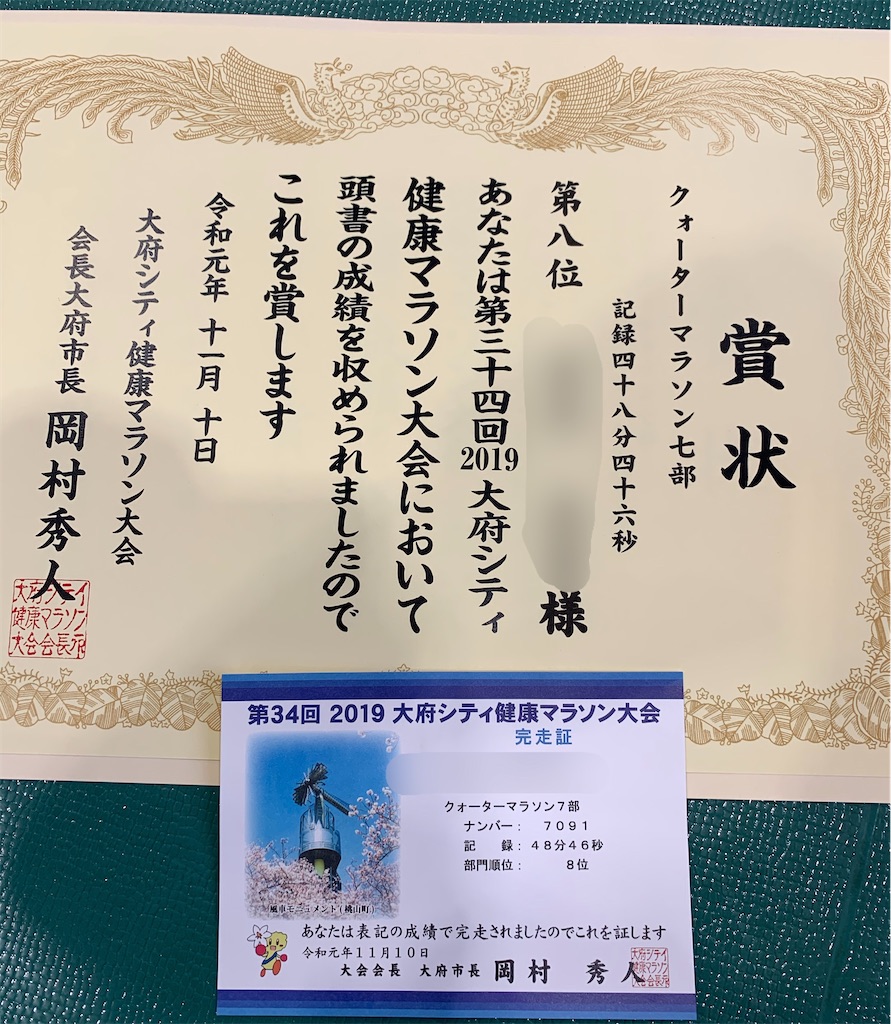 賞状
クォーターマラソン七部
記録四十八分四十六秒
第八位 様
あなたは第三十四回2019大府シティ
健康マラソン大会において
頭書の成績を収められましたので
これを賞します
令和元年 十一月 十日
大府シティ健康マラソン大会
会長大府市長 岡村秀人
大府シティ
健康マラソン
大会会長印
第34回 2019 大府シティ健康マラソン大会
完走証
クォーターマラソン7部
ナンバー: 7091
記 録: 48分46秒
部門順位: 8位
風車モニュメント(桃山町)
あなたは表記の成績で完走されましたのでこれを証します
令和元年11月10日
大会会長 大府市長 岡村 秀人
大府シティ
健康マラソン
大会会長印